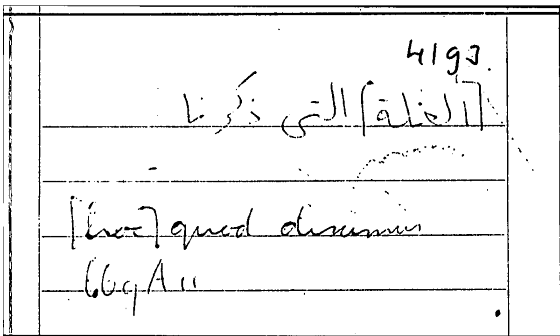 419a
[العلة] التي ذكرنا
[hoc] quod diximus
669A11